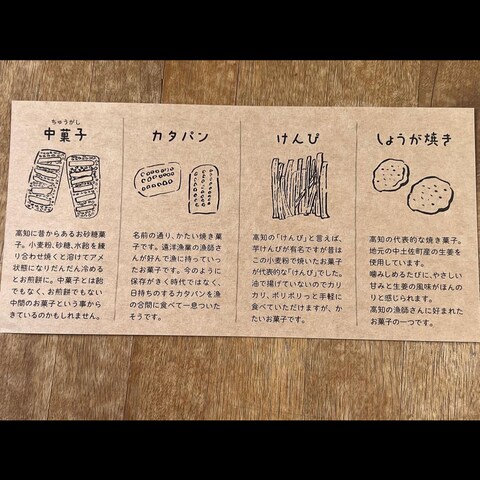 ちゅうがし
中菓子
高知に昔からあるお砂糖菓
子。小麦粉、砂糖、水飴を練
り合わせ焼くと溶けてアメ
状態になりだんだん冷める
とお煎餅に。中菓子とは飴
でもなく、お煎餅でもない
中間のお菓子という事から
きているのかもしれません。
カタパン
名前の通り、かたい焼き菓
子です。遠洋漁業の漁師さ
んが好んで漁に持っていっ
たお菓子です。今のように
保存がきく時代ではなく、
日持ちのするカタパンを漁
の合間に食べて一息ついた
そうです。
けんぴ
高知の「けんぴ」と言えば、
芋けんぴが有名ですが昔は
この小麦粉で焼いたお菓子
が代表的な「けんぴ」でした。
油で揚げていないのでカリ
カリ、ポリポリっと手軽に
食べていただけますが、か
たいお菓子です。
しょうが焼き
高知の代表的な焼き菓子。
地元の中土佐町産の生姜を
使用しています。
噛みしめるたびに、やさしい
甘みと生姜の風味がほんの
りと感じられます。
高知の漁師さんに好まれた
お菓子の一つです。